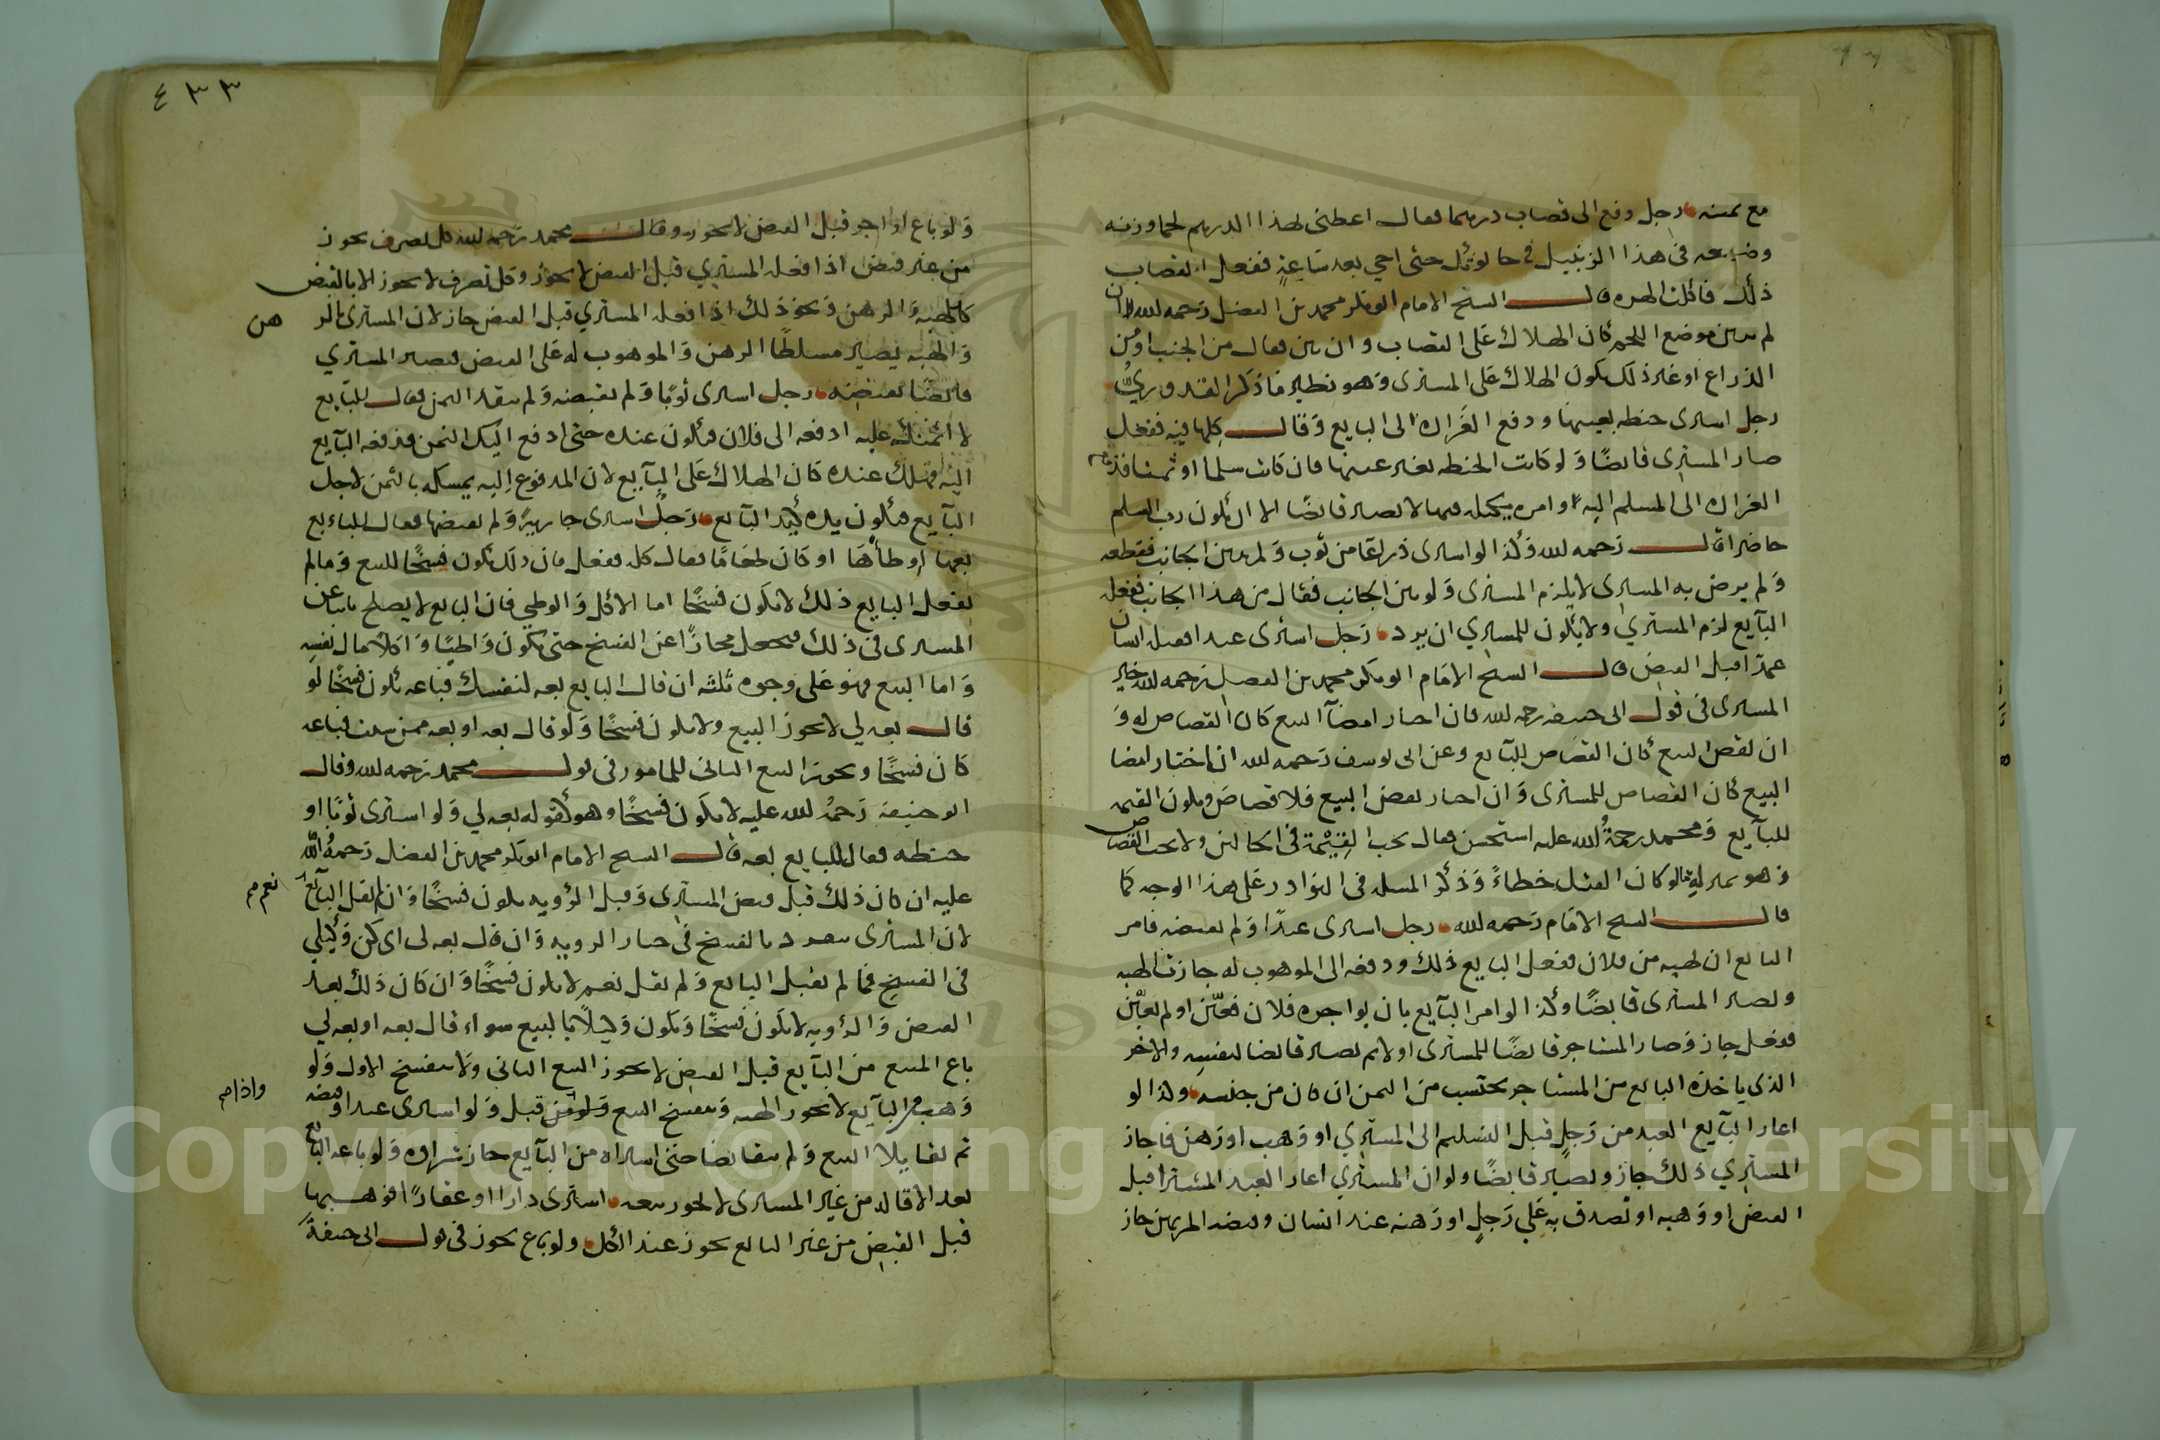 مع بمينه رجل دفع الى قصاب درهما فقال اعطني لهذا الدرهم لحما وزنه
وضعه في هذا الزنبيل في حانوتك حتى اجي بعد ساعة ففعل القصاب
ذلك فاكلت الهره قال الشيخ الامام ابو بكر محمد بن الفضل رحمه الله ان
لم يبين موضع اللحم كان الهلاك على القصاب وان بين فقال من الجنب او من
الذراع او غير ذلك يكون الهلاك على المشتري وهو نظير ما ذكر القدوري
رجل اشترى حنطه بعينها ودفع الغراره الى البايع وقال كلها فيه ففعل
صار المشتري قابضا ولو كانت الحنطه بغير عينها فان كانت سلما او ثمنا فدفع
الغراره الى المسلم اليه وامره بكيله فيها لا يصير قابضا الا ان يكون رب السلم
حاضرا قال رحمه الله وكذا لو اشترى ذراعا من ثوب ولم يبين الجانب فقطعه
ولم يرض به المشتري لا يلزم المشتري ولو بين الجانب فقال من هذا الجانب ففعله
البآيع لزم المشتري ولا يكون للمشتري ان يرد رجل اشترى عبدا فقتله انسان
عمدا قبل القبض قال الشيخ الامام ابو بكر محمد بن الفضل رحمه الله خير
المشتري في قول ابي حنيفه رحمه الله فان اختار امضآ البيع كان القصاص له و
ان نقض البيع كان القصاص للبآيع وعن ابي يوسف رحمه الله ان اختار امضا
البيع كان القصاص للمشتري وان اختار نقض البيع فلا قصاص ويكون القيمه
للبآيع ومحمد رحمة الله عليه استحسن فقال يجب القيمة في الحالين ولا يجب القصاص
وهو بمنزلة ما لو كان القتل خطاء وذكر المسله في النوادر على هذا الوجه كما
قال الشيخ الامام رحمه الله رجل اشترى عبدا ولم يقبضه فامر
البايع ان يهبه من فلان ففعل البايع ذلك ودفعه الى الموهوب له جازت الهبه
ويصير المشتري قابضا وكذا لو امر البآيع بان يواجره فلان فعين او لم يعين
ففعل جاز وصار المستاجر قابضا للمشتري اولا ثم يصير قابضا لنفسه والاجر
الذي ياخذه البايع من المستاجر يحتسب من الثمن ان كان من جنسه وكذا لو
اعار البآيع العبد من رجل قبل التسليم الى المشتري او وهب او رهن فاجاز
المشتري ذلك جاز ويصير قابضا ولو ان المشتري اعار العبد المشترا قبل
القبض او وهبه او تصدق به على رجل او رهنه عند انسان وقبضه المرتهن جاز
٤٣٣
ولو باع او اجر قبل القبض لا يجوز وقال محمد رحمه الله كل تصرف يجوز
من غير قبض اذا فعله المشتري قبل القبض لا يجوز وكل تصرف لا يجوز الا بالقبض
كالهبه والرهن ونحو ذلك اذا فعله المشتري قبل القبض جاز لان المشتري بالر
هن
والهبه يصير مسلطا الرهن والموهوب له على القبض فيصير المشتري
قابضا بقبضه رجل اشترى ثوبا ولم يقبضه ولم ينقد الثمن فقال للبآيع
لا ائتمنك عليه ادفعه الى فلان فيكون عنده حتى ادفع اليك الثمن فدفعه البآيع
اليه فهلك عنده كان الهلاك على البآيع لان المدفوع اليه يمسكه بالثمن لاجل
البآيع فيكون يده كيد البآيع رجل اشترى جارية ولم يقبضها فقال للبايع
بعها او طأها او كان طعاما فقال كله ففعل فان ذلك يكون فسخا للبيع وما لم
يفعل البايع ذلك لا يكون فسخا اما الاكل والوطي فان البايع لا يصلح نايبا عن
المشتري في ذلك فيجعل مجازا عن الفسخ حتى يكون واطيا واكلا مال نفسه
واما البيع فهو على وجوه ثلثه ان قال البايع بعه لنفسك فباعه يكون فسخا لو
قال بعه لي لا يجوز البيع ولا يكون فسخا ولو قال بعه او بعه ممن شئت فباعه
كان فسخا ويجوز البيع الثاني للمامور في قول محمد رحمه الله وقال
ابو حنيفه رحمه الله عليه لا يكون فسخا وهو كقوله بعه لي ولو اشترى ثوبا او
حنطه فقال للبايع بعه قال الشيخ الامام ابو بكر محمد بن الفضل رحمه الله
عليه ان كان ذلك قبل قبض المشتري وقبل الرؤيه يكون فسخا وان لم يقل البآيع
نعم م
لان المشتري ينفرد بالفسخ في خيار الرويه وان قال بعه لي اي كن وكيلي
في الفسخ فما لم يقبل البايع ولم يقل نعم لا يكون فسخا وان كان ذلك بعد
القبض والرؤيه لا يكون فسخا ويكون وكيلا بالبيع سواء قال بعه او بعه لي
باع المبيع من البآيع قبل القبض لا يجوز البيع الثاني ولا ينفسخ الاول ولو
وهب من البآيع لا يجوز الهبه وينفسخ البيع قبل ولو اشترى عبدا وقبضه
واذا م
ثم تقايلا البيع ولم يتقابضا حتى اشتراه من البآيع جاز شراؤه ولو باعه البايع
بعد الاقاله من غير المشتري لا يجوز بيعه اشترى دارا او عقارا فوهبها
قبل القبض من غير البايع يجوز عند الكل ولو باع يجوز في قول ابي حنيفة